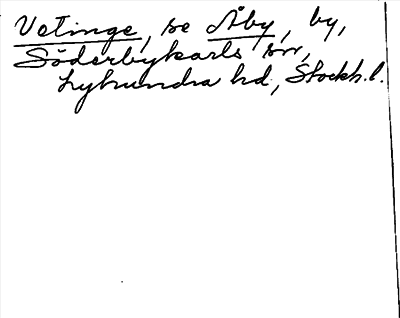 Vetinge, se Åby, by,
Söderbykarls sn,
Lyhundra hd, Stockh. l.